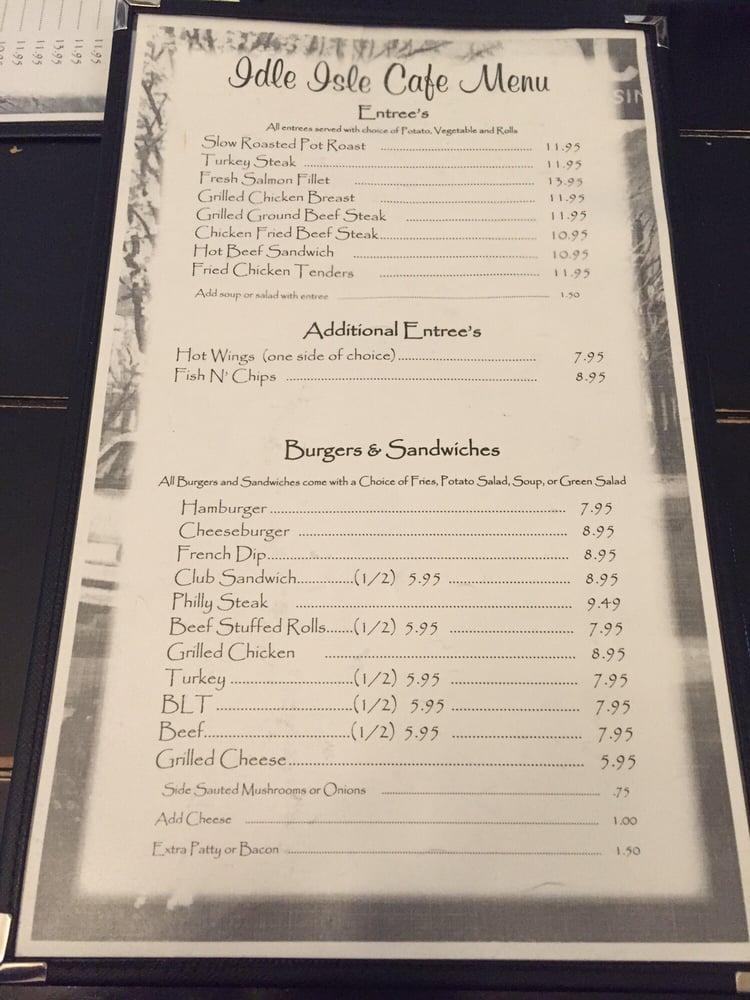 Idle Isle Cafe Menu
Entree's
All entrees served with choice of Potato, Vegetable and Rolls
Slow Roasted Pot Roast ........ 11.95
Turkey Steak ........ 11.95
Fresh Salmon Fillet ........ 13.95
Grilled Chicken Breast ........ 11.95
Grilled Ground Beef Steak ........ 11.95
Chicken Fried Beef Steak ........ 10.95
Hot Beef Sandwich ........ 10.95
Fried Chicken Tenders ........ 11.95
Add soup or salad with entree ........ 1.50
Additional Entree's
Hot Wings (one side of choice) ........ 7.95
Fish N' Chips ........ 8.95
Burgers & Sandwiches
All Burgers and Sandwiches come with a Choice of Fries, Potato Salad, Soup, or Green Salad
Hamburger ........ 7.95
Cheeseburger ........ 8.95
French Dip ........ 8.95
Club Sandwich ........ (1/2) 5.95 ........ 8.95
Philly Steak ........ 9.49
Beef Stuffed Rolls ........ (1/2) 5.95 ........ 7.95
Grilled Chicken ........ 8.95
Turkey ........ (1/2) 5.95 ........ 7.95
BLT ........ (1/2) 5.95 ........ 7.95
Beef ........ (1/2) 5.95 ........ 7.95
Grilled Cheese ........ 5.95
Side Sauted Mushrooms or Onions ........ .75
Add Cheese ........ 1.00
Extra Patty or Bacon ........ 1.50
11.95
11.95
13.95
11.95
11.95